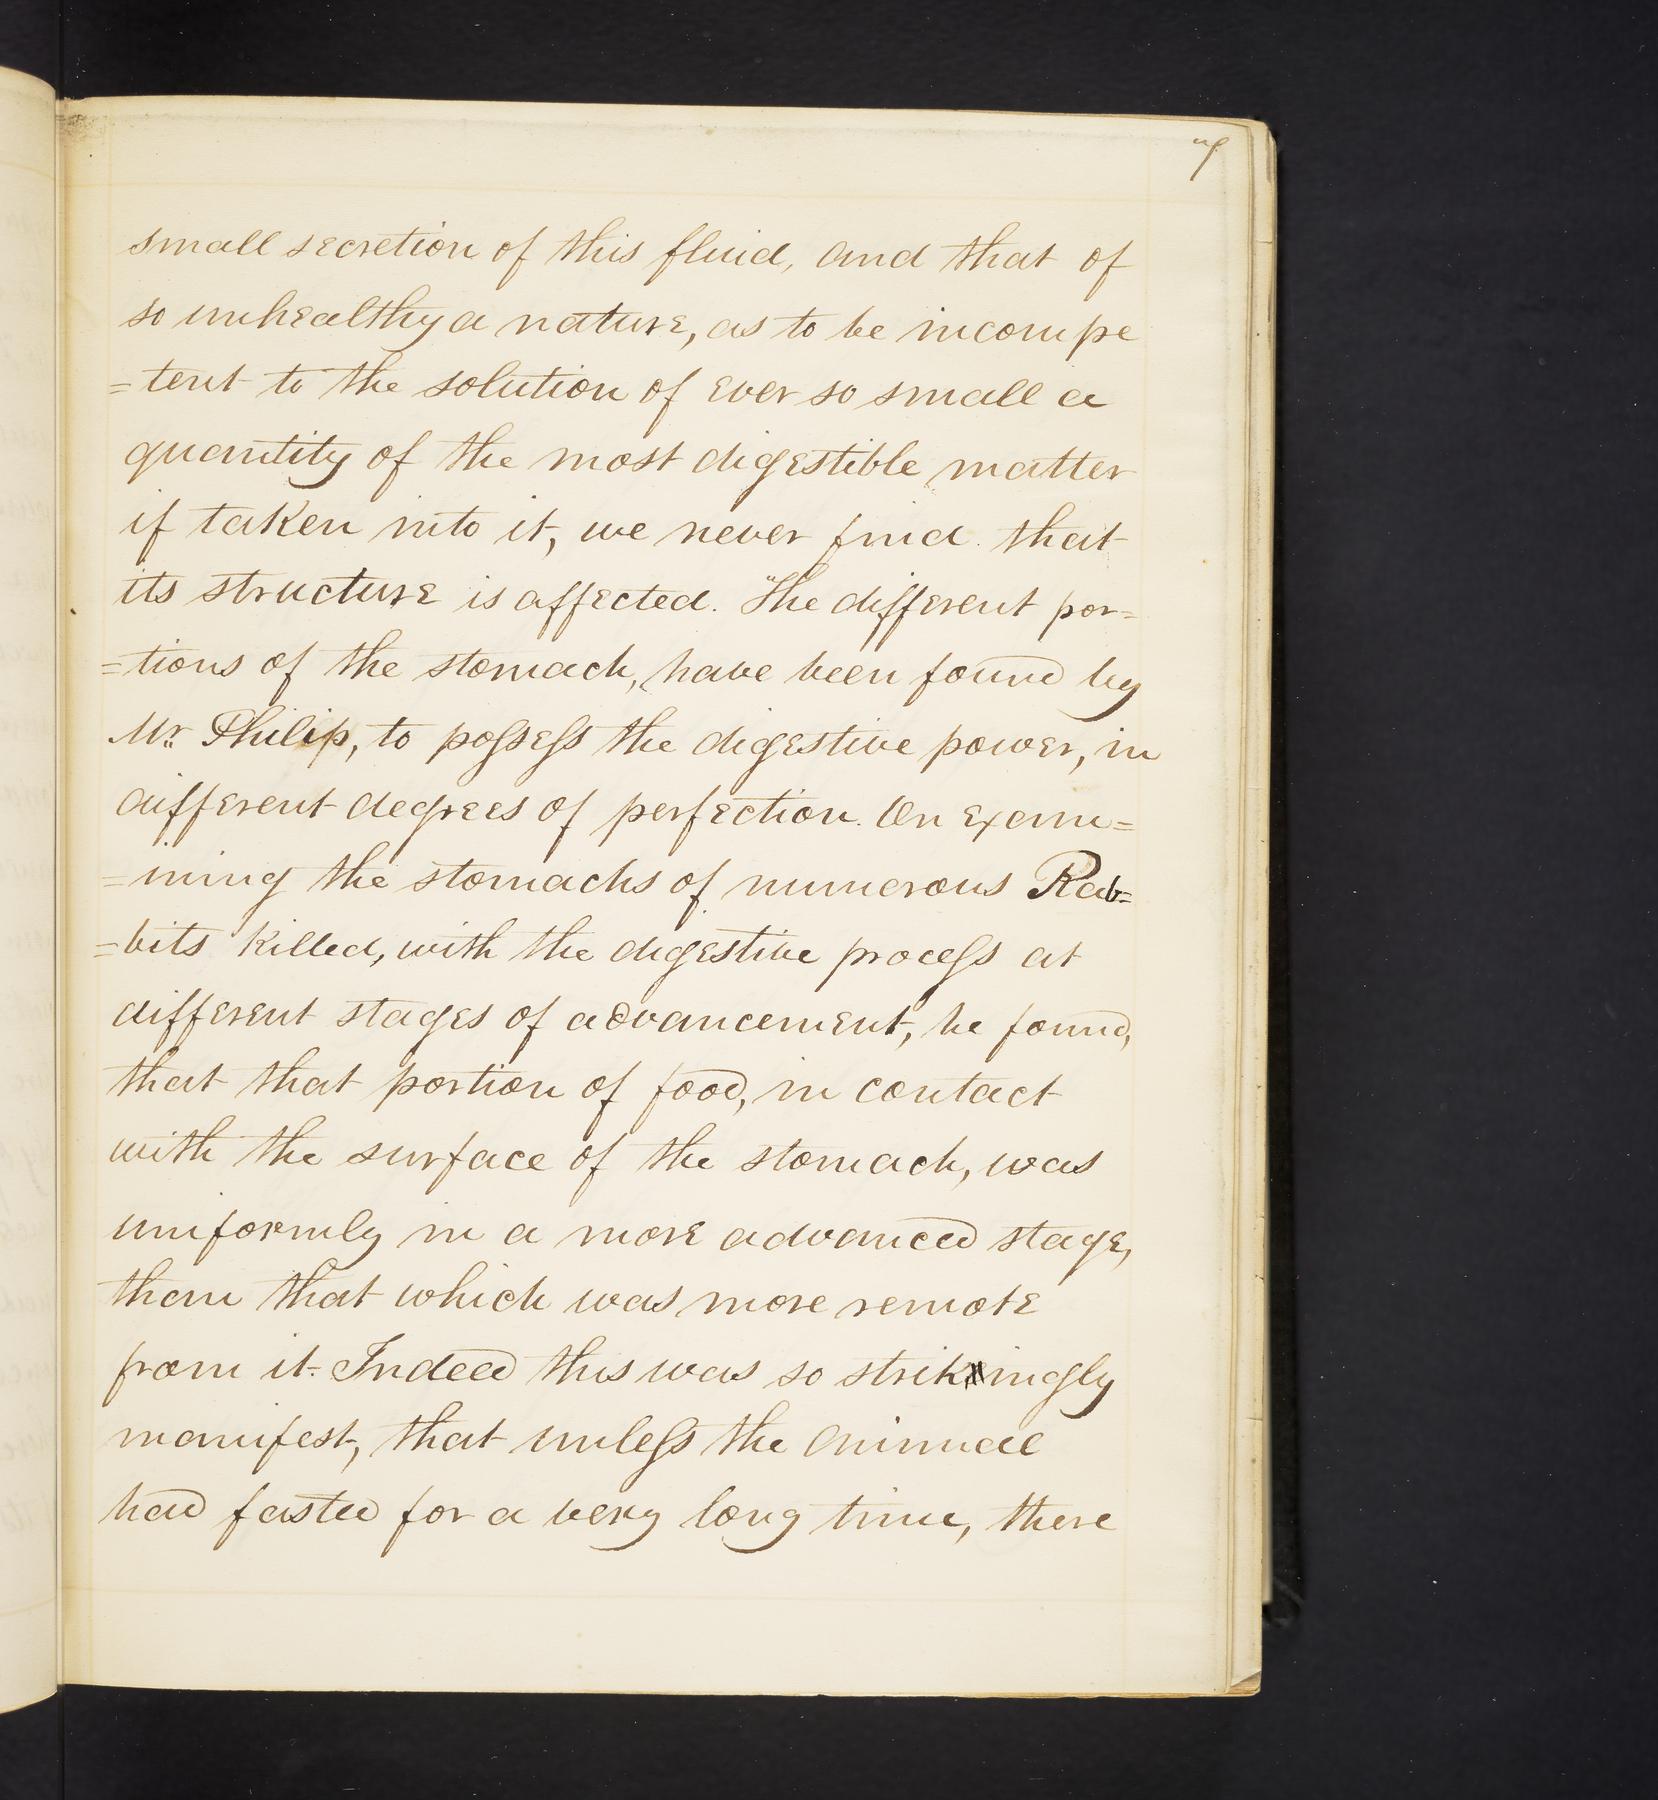 7
small secretion of this fluid, and that of
so unhealthy a nature, as to be incompe
=tent to the solution of ever so small a
quantity of the most digestible matter
if taken into it, we never find that
its structure is affected. The different por=
=tions of the stomach, have been found by
Mr. Philip, to possess the digestive power, in
different degrees of perfection. On exam=
=ining the stomachs of numerous Rab=
=bits killed, with the digestive process at
different stages of advancement, he found,
that that portion of food, in contact
with the surface of the stomach, was
uniformly in a more advanced stage,
than that which was more remote
from it. Indeed this was so strikingly
manifest, that unless the animal
had fasted for a very long time, there